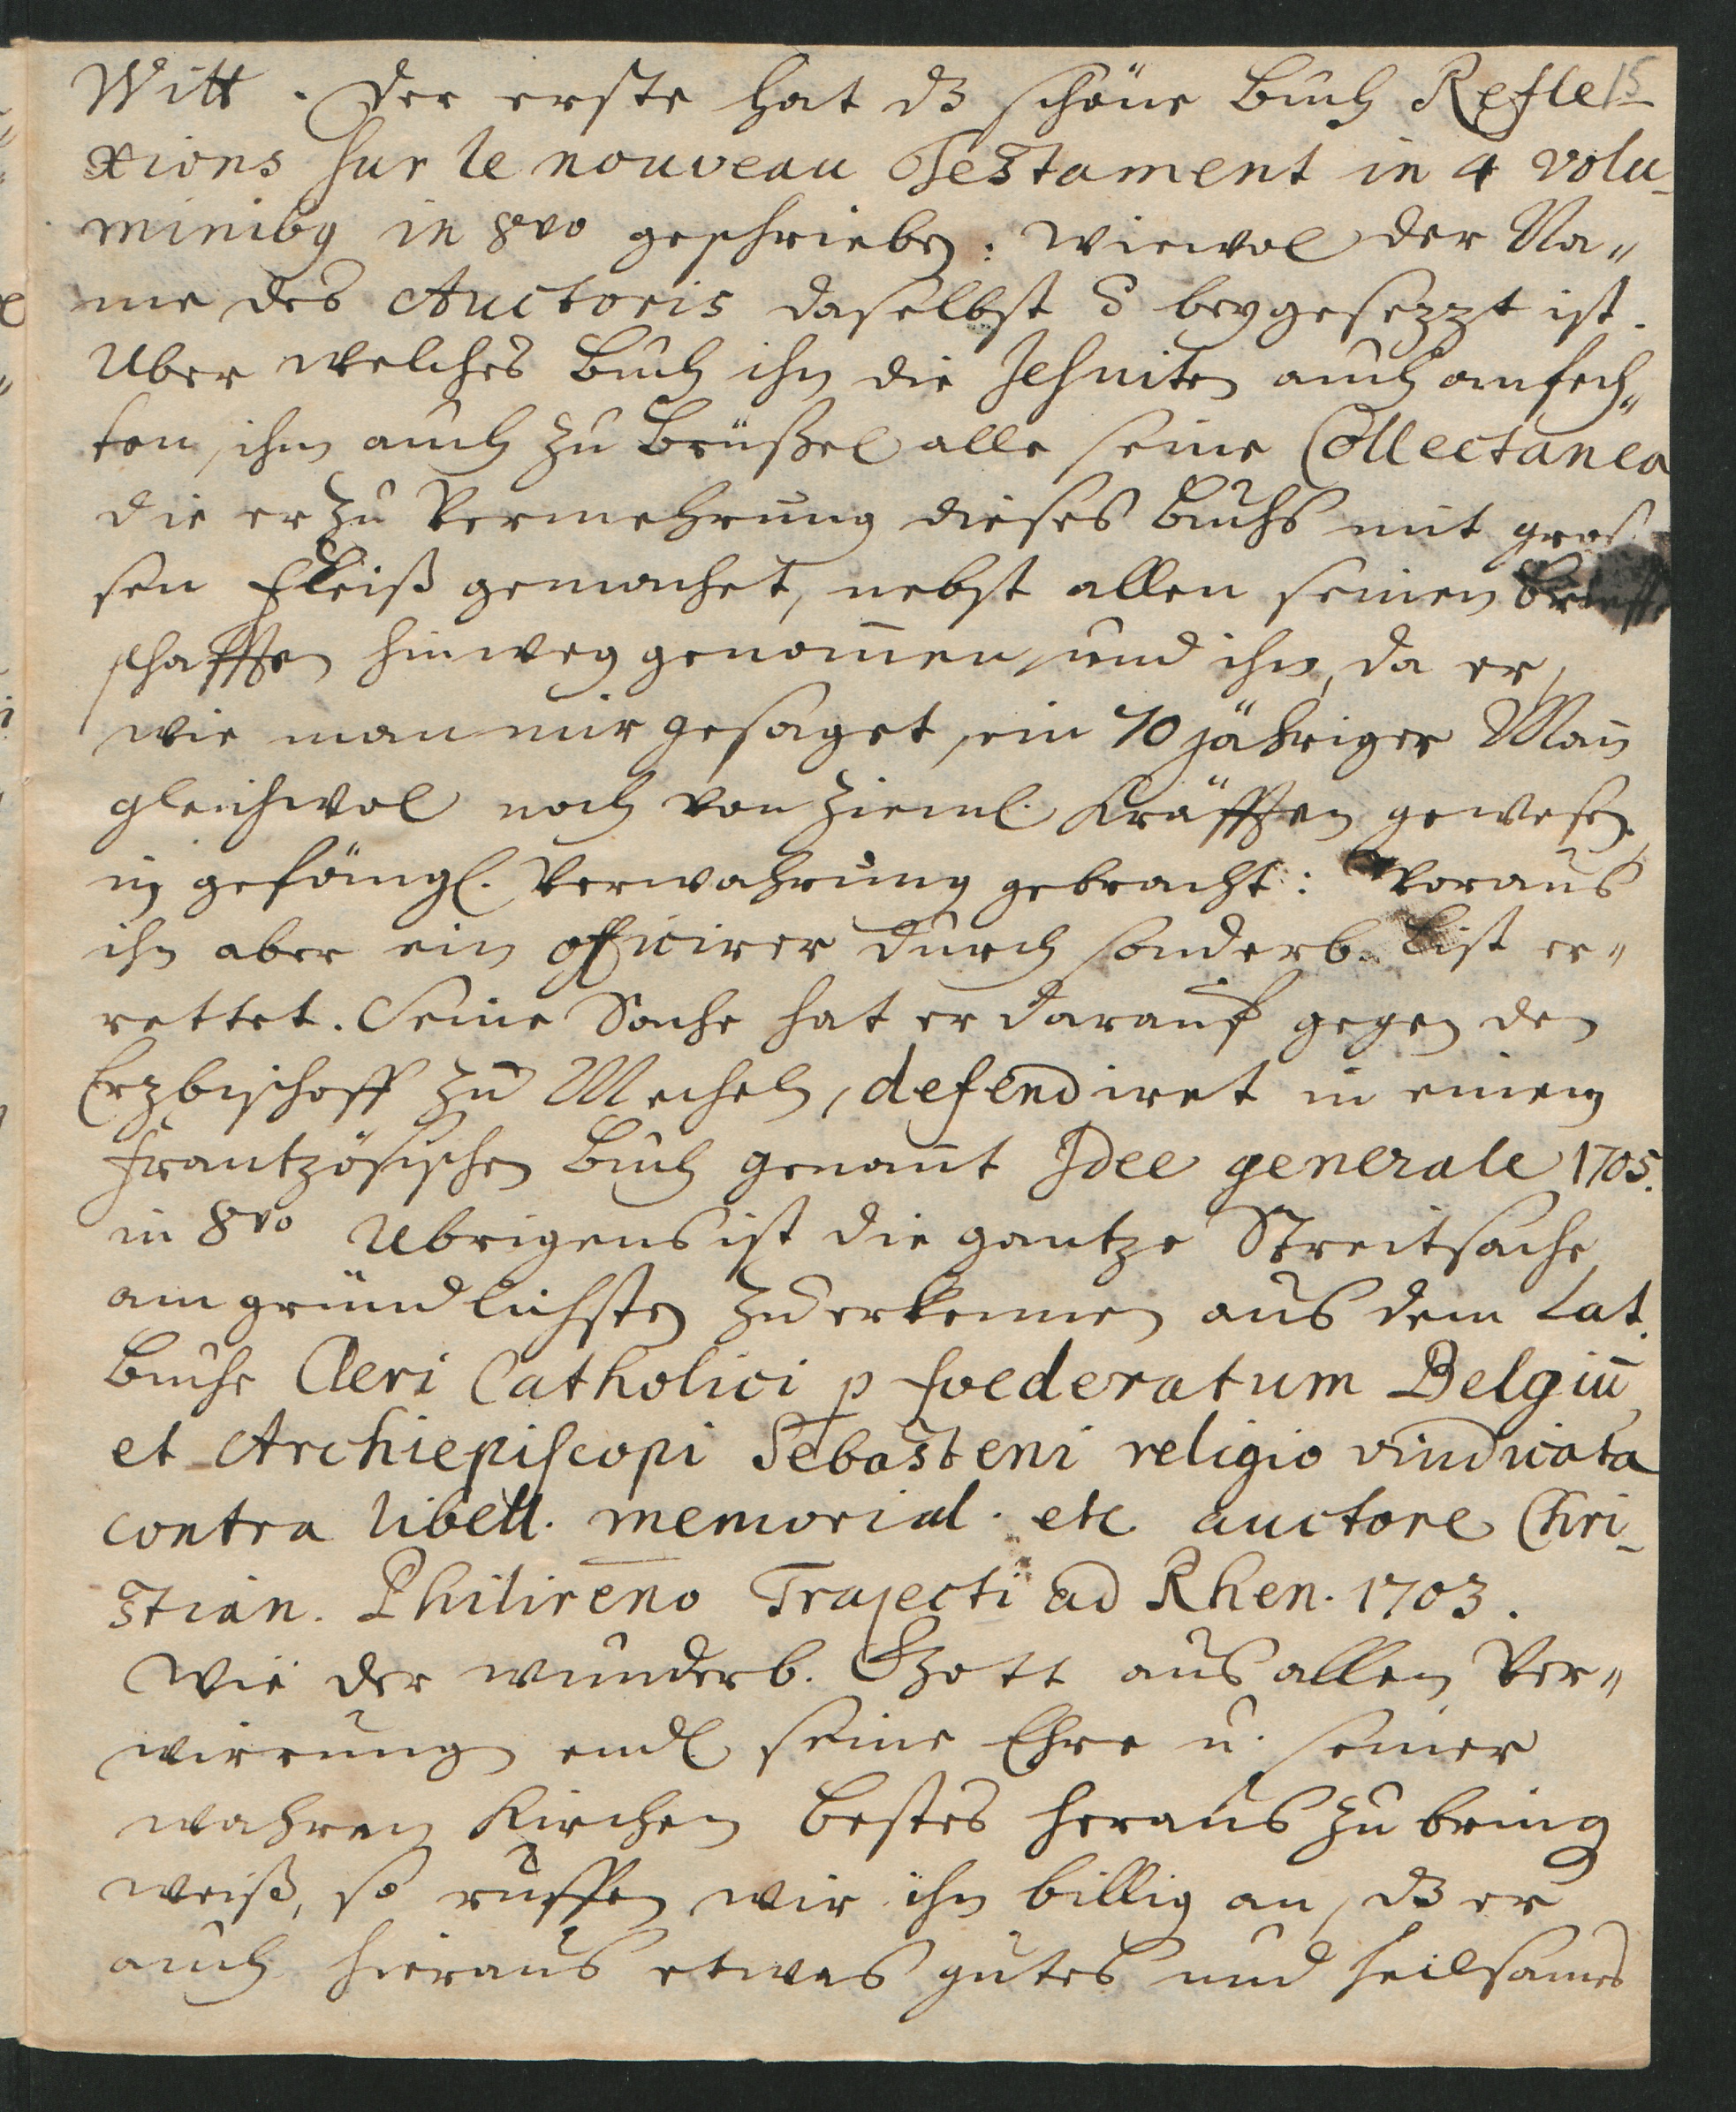 15
Witt. Der erste hat dz schöne Buch Refle-
xions sur le nouveau Testament in 4 volu-
minibq in 8vo geschrieben: wiewol der Na„
me des Auctoris daselbst beygesezzt ist.
Uber welches Buch ihn die Jesuiten auch anfech„
ten, ihm auch zu Brüßel alle seine Collectanea
die er zu Vermehrung dieses Buchs mit gros
sen Fleiß gemachet, nebst allen seinen Brieff
schafften hinweg genom̄en, und ihn, da er,
wie man mir gesaget, ein 70 jähriger Man̄
gleichwol noch von zieml. Kräfften gewesen,
in gefängl. Verwahrung gebracht: Woraus
ihn aber ein officirer durch sonderb. List er„
rettet. Seine Sache hat er darauf gegen den
Erzbischoff zu Mecheln, defendiret in einem
Frantzösischen Buch genan̄t Idee generale 1705.
in 8vo Ubrigens ist die gantze Streitsache
am gründlichsten zu erkennen aus dem Lat.
Buche Cleri Catholici p foederatum Belgiū
et Archiepiscopi Sebasteni religio vindicata
contra libell. memorial. etc auctore Chri-
stian. Philireno Trajecti ad Rhen. 1703.
Wie der wunderb. Gott aus allen Ver„
wirrung endl seine Ehre u. seiner
wahren Kirchen bestes heraus zu bring
weiß, so ruffen wir ihn billig an, dz er
auch hieraus etwas gutes und heilsames